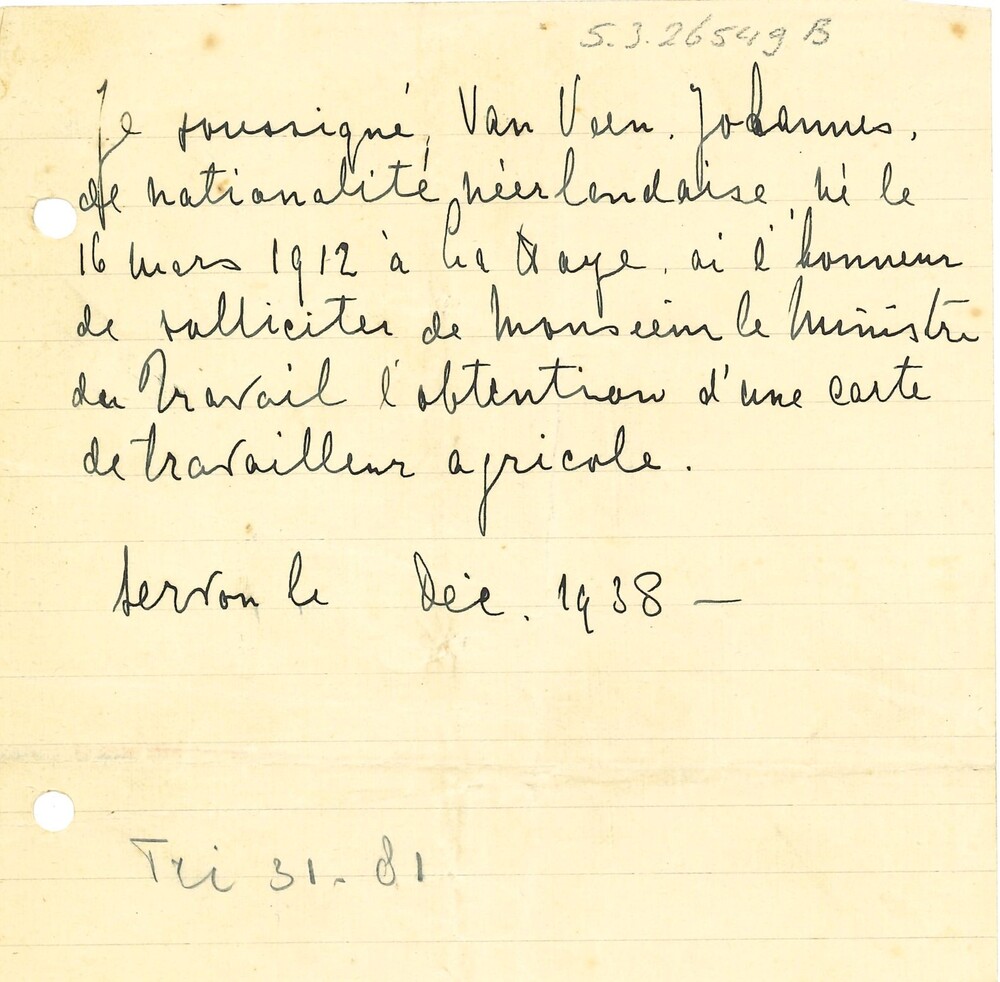 5.3.26549 B
Je soussigné, Van Veen. Johannes,
de nationalité néerlandaise, né le
16 mars 1912 à La Haye, ai l'honneur
de solliciter de Monsieur le Ministre
du Travail l'obtention d'une carte
de travailleur agricole.
Servon le Déc. 1938 —
Tri 31-81